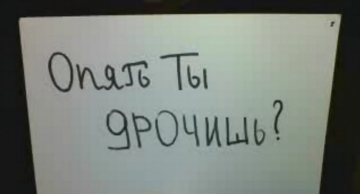 Опять Ты
дрочишь?